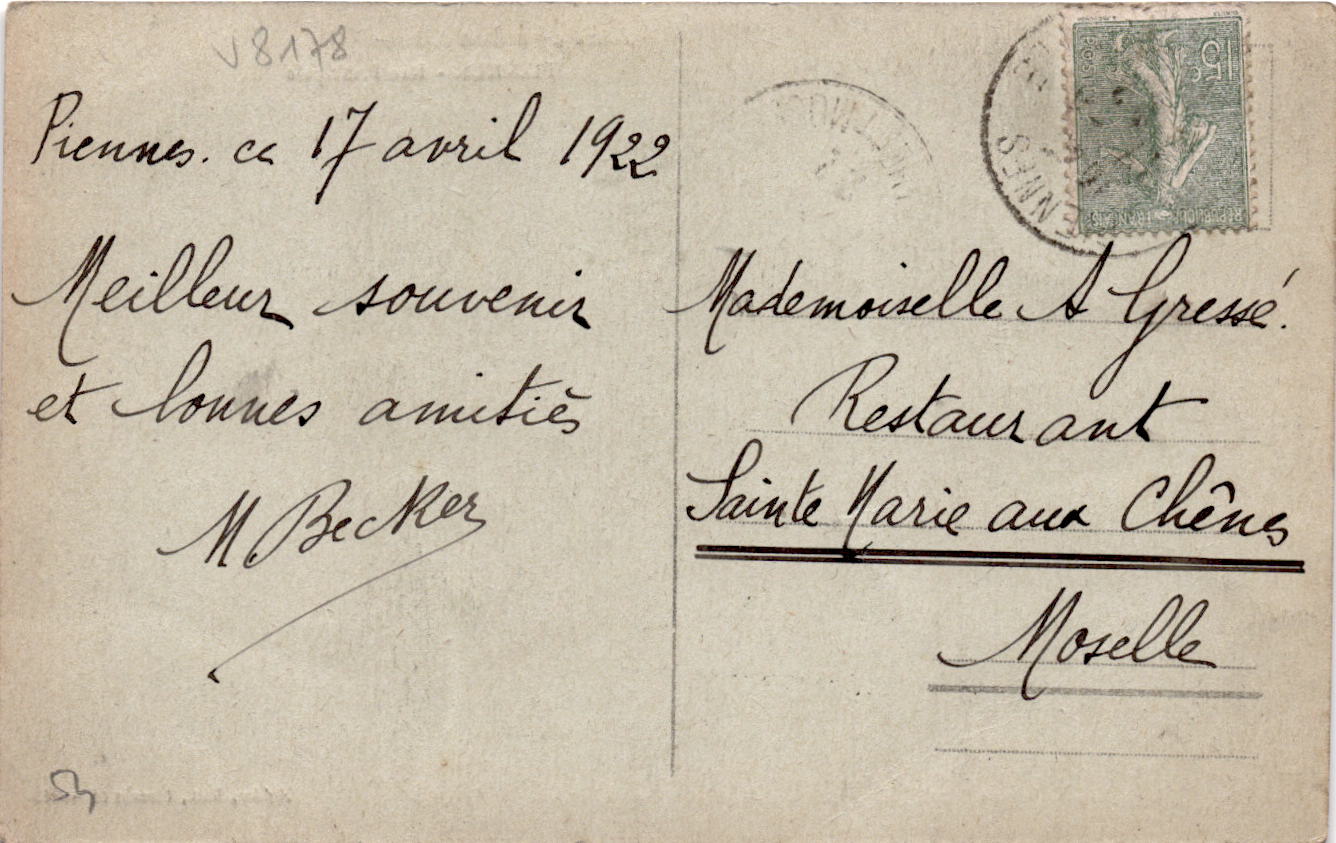 V8178
Piennes. ce 17 avril 1922
Meilleur souvenir
et bonnes amitiés
M Becker
54
15c
POSTES
RÉPUBLIQUE FRANÇAISE
PIENNES
Mademoiselle A Gressé.
Restaurant
Sainte Marie aux Chênes
Moselle